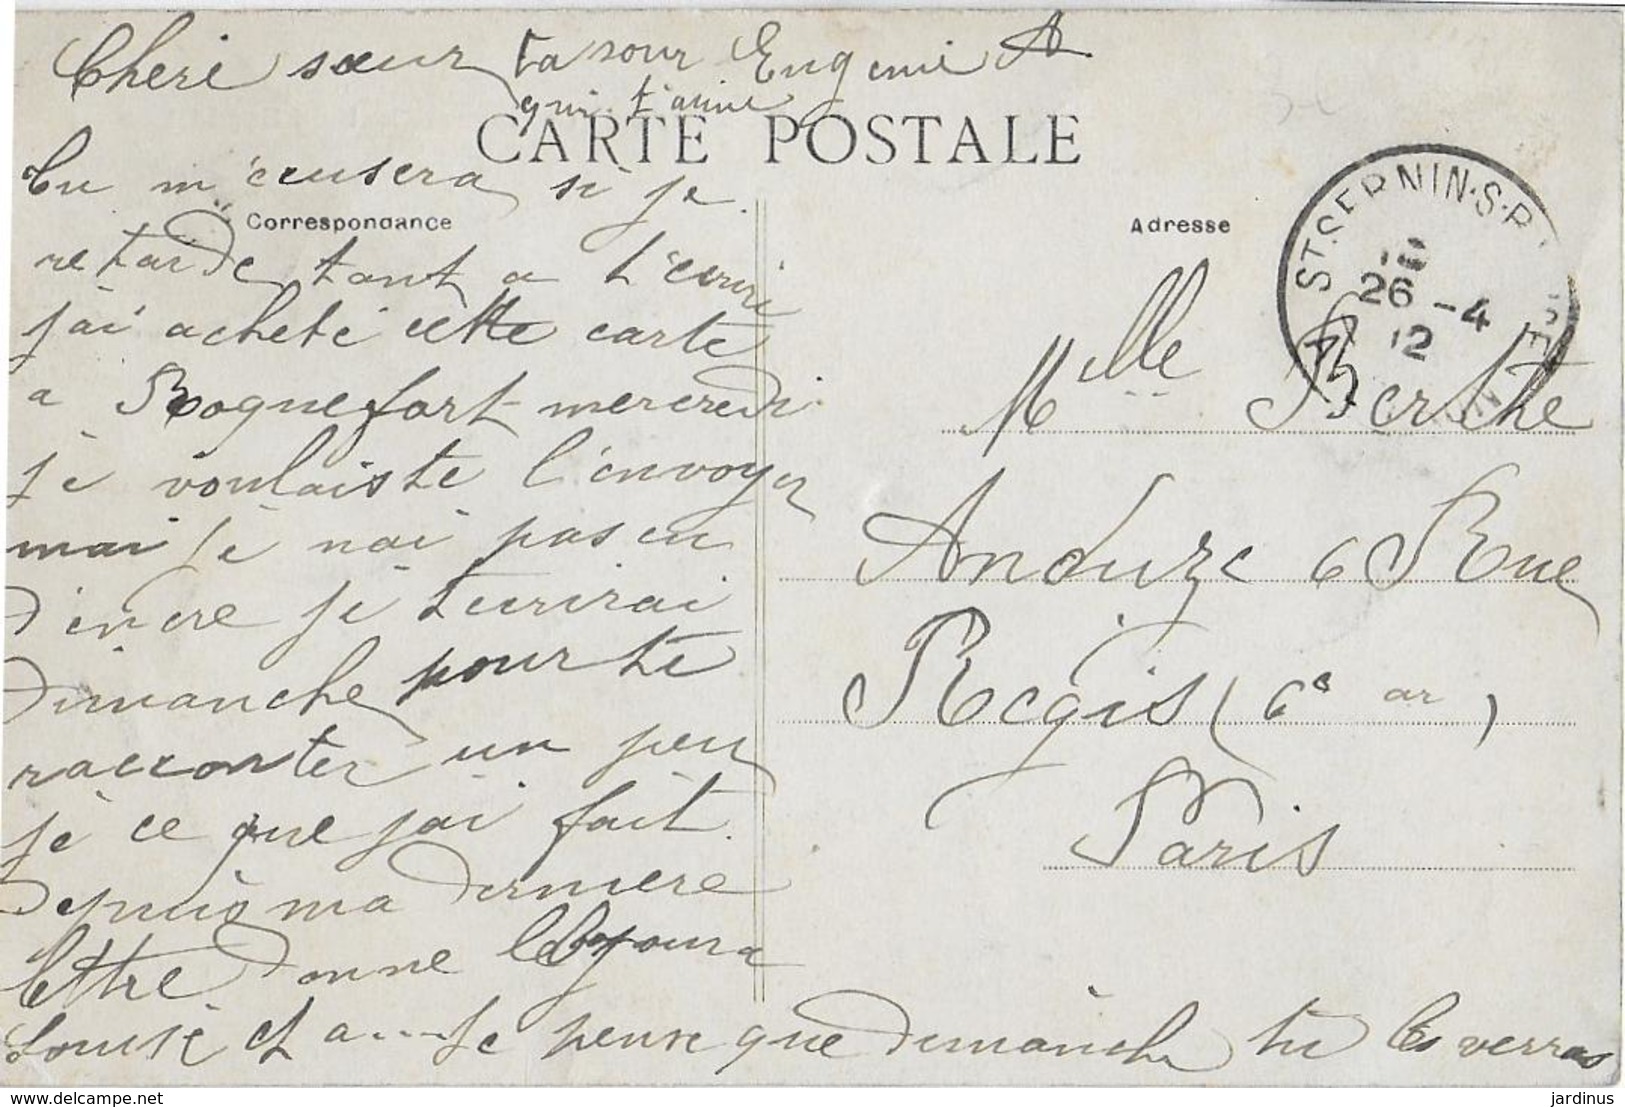 Cheri sœur ta sour Eugenie A
qui t'aime
CARTE POSTALE
Tu m'ecusera si je
Correspondance
Adresse
retarde tant a t'ecrire
j'ai acheté cette carte
a Roquefort mercredi
je voulaiste l'envoyer
mai je nai pas eu
d'encre je tecrirai
dimanche pour te
raconter un peu
je ce que jai fait
depuis ma derniere
lettre donne le bonjour a
Louise et a .... Je pense que dimanche tu les verras
ST SERNIN-S-R
26 -4
12
Mlle Berthe
Anduze 6 Rue
Regis (6e ar)
Paris
delcampe.net
jardinus